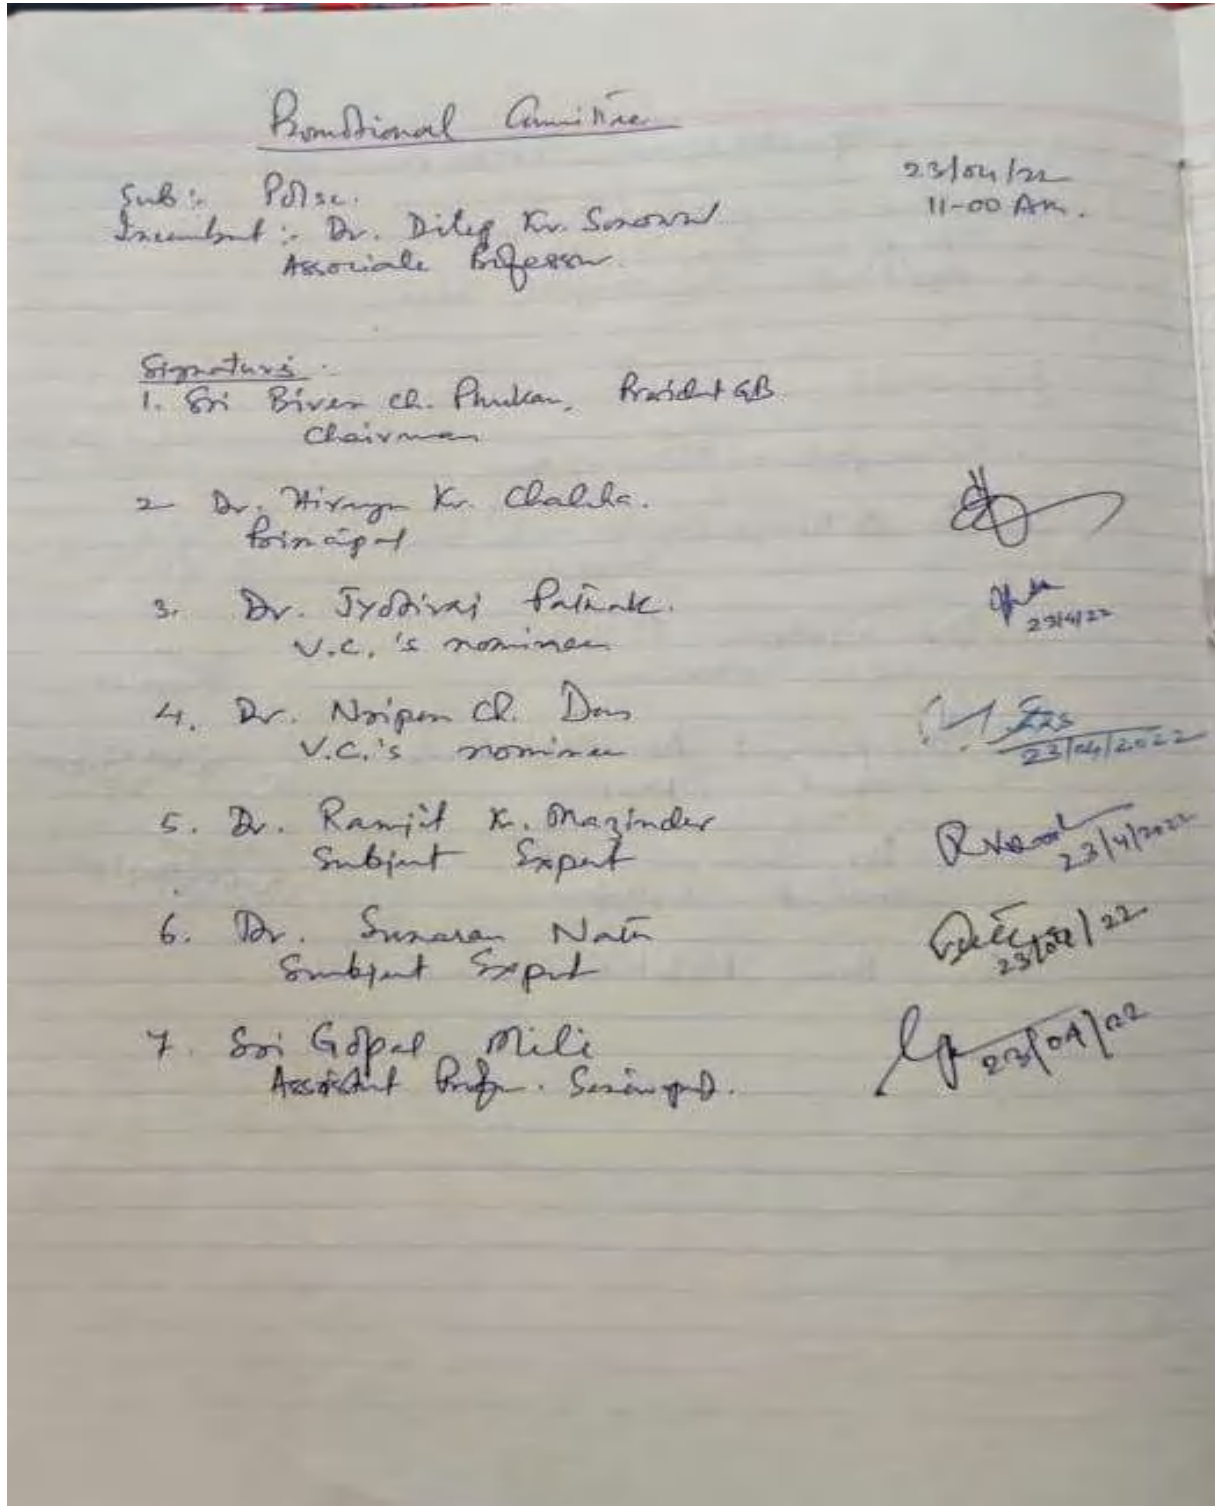 Promotional Committee
23/04/22
11-00 Am.
Sub :- Pol sc.
Incumbent :- Dr. Dilip Kr. Sonowal
Associate Professor.
Signatures
1. Sri Biren Ch. Phukan, President GB.
Chairman
2 Dr. Hiranya Kr. Chaliha.
Principal
3. Dr. Jyotiraj Pathak.
23/4/22
V.C.'s nominee
4. Dr. Nripen Ch. Das
Das
V.C.'s nominee
23/04/2022
5. Dr. Ranjit K. Mazinder
Subject Expert
23/4/2022
6. Dr. Nath
Subject Expert
23/04/22
7. Sri Gopal Mili
23/04/22
Assistant Profr.